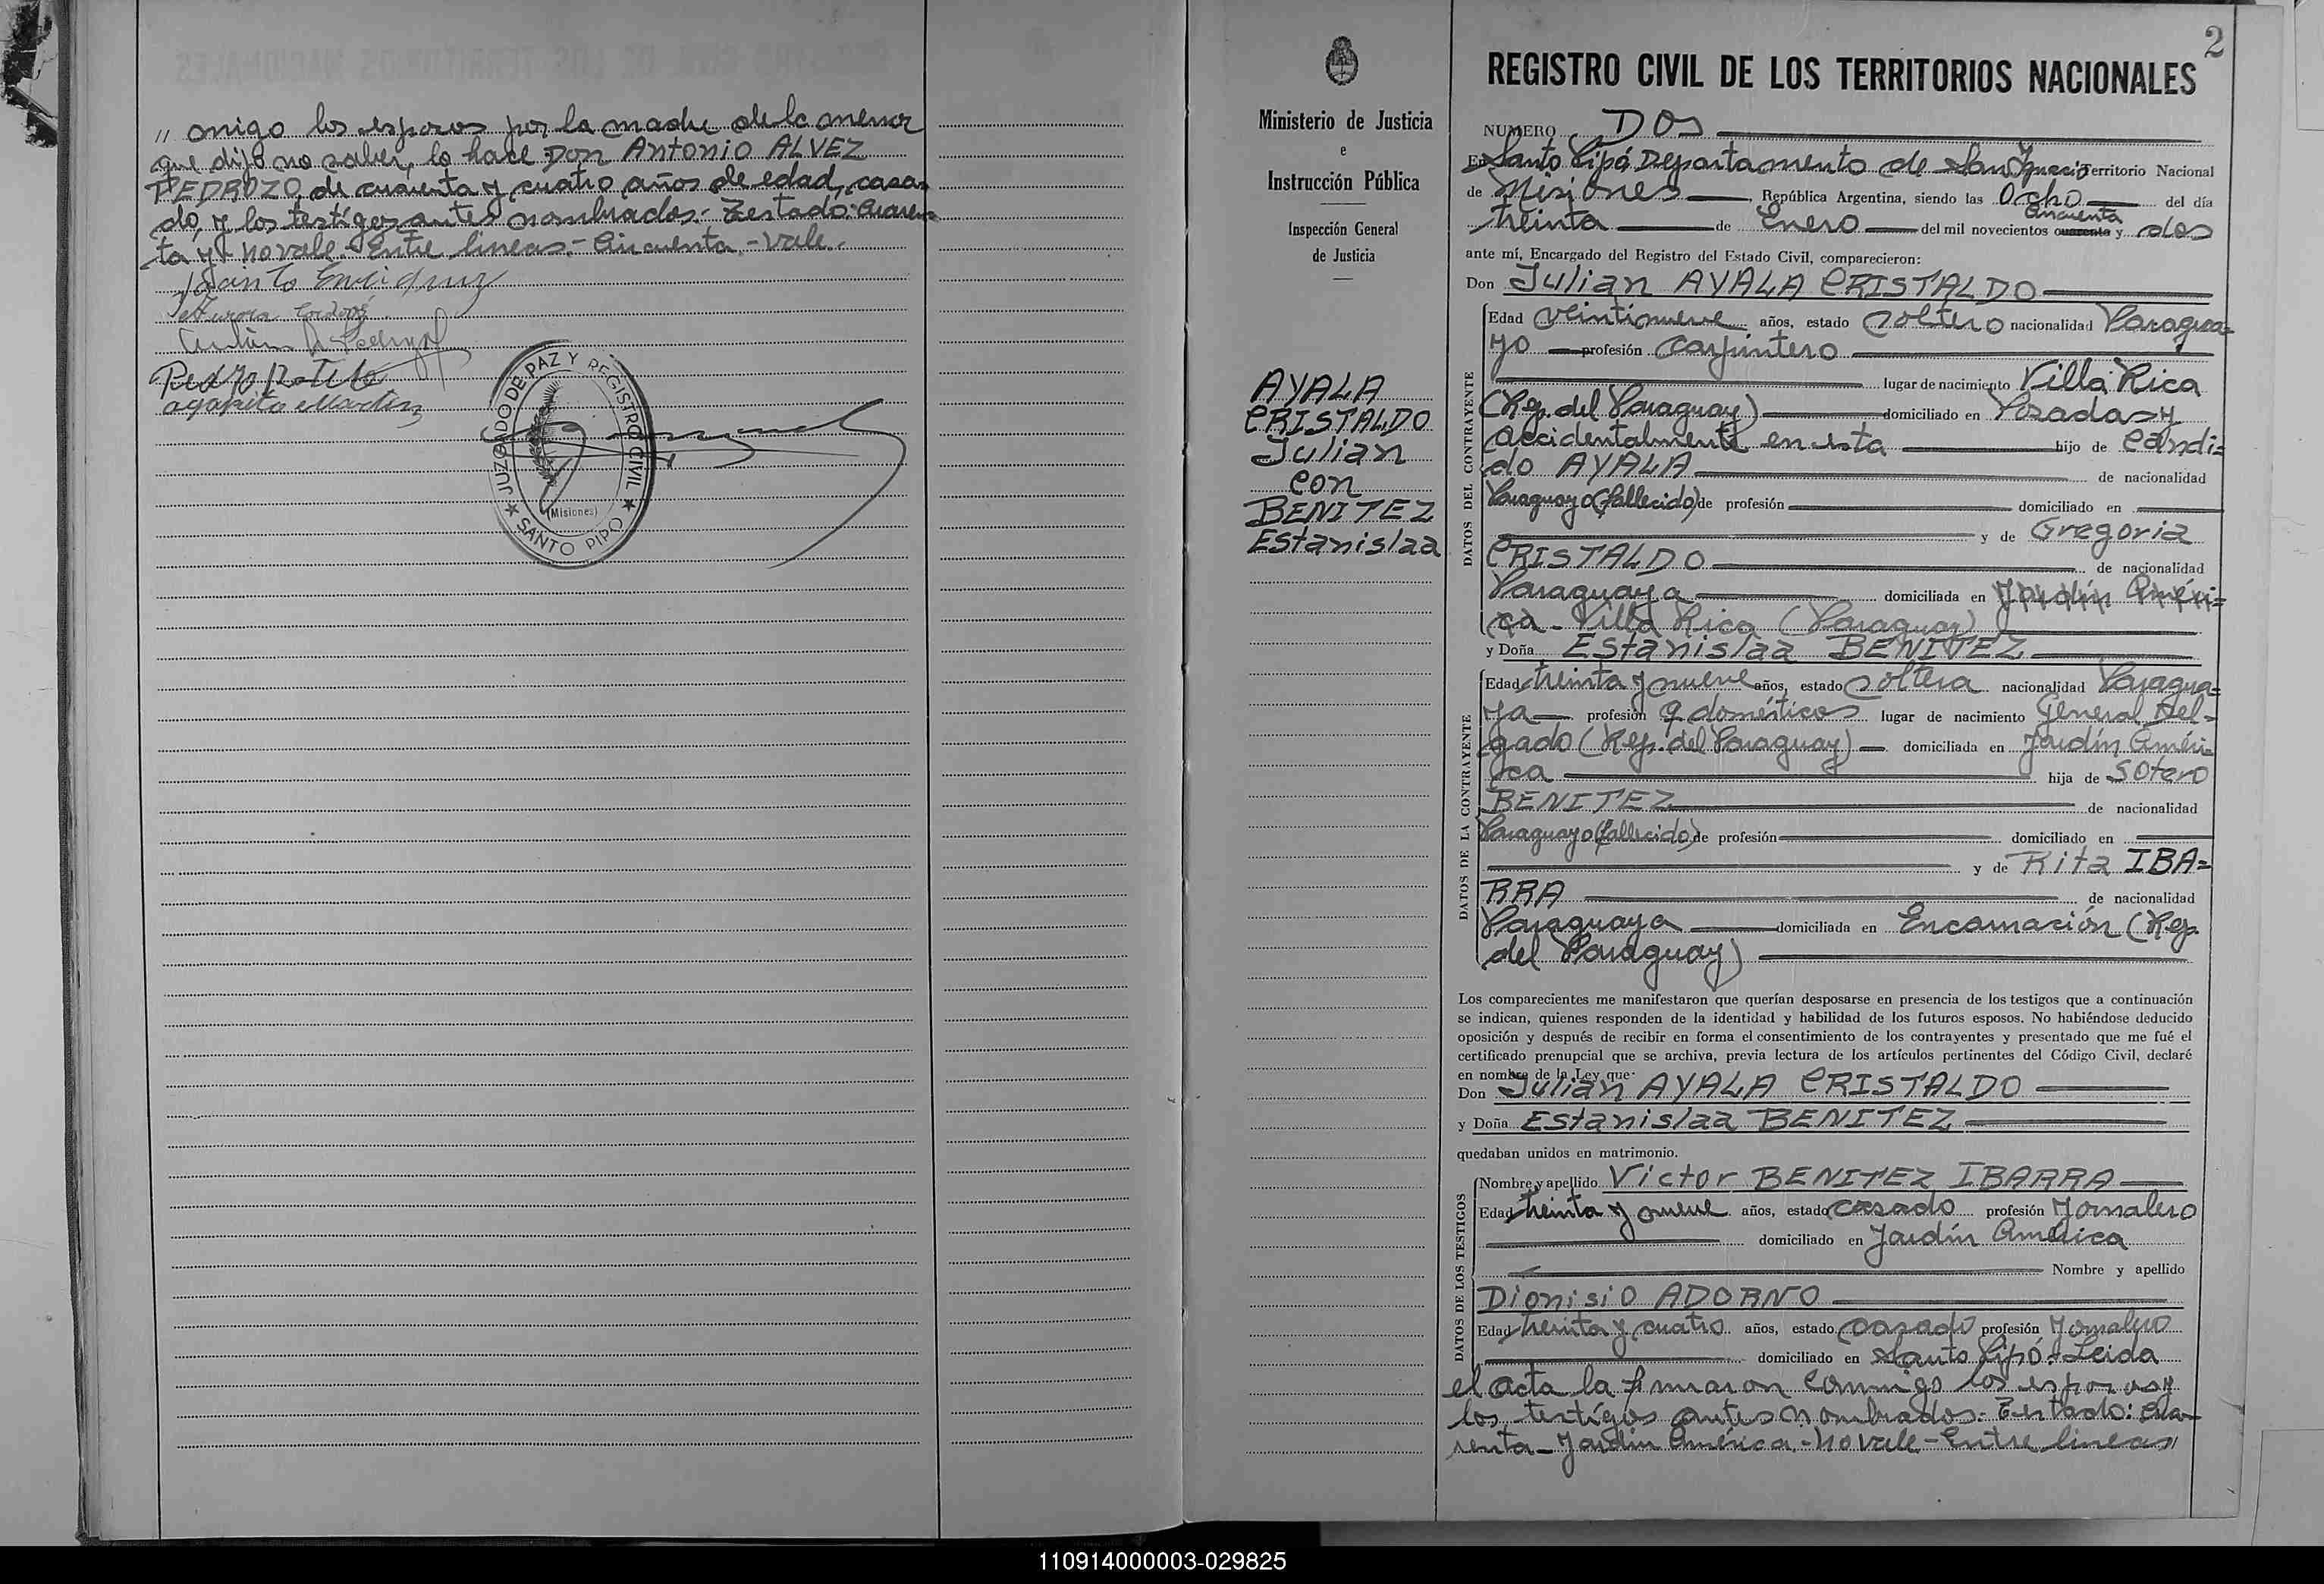 " onigo los esposos por la madre de la menor
que dijo no saber, lo hace Don Antonio ALVEZ
PEDROZO, de cuarenta y cuatro años de edad, casa-
do, y los testigos antes nombrados.- Testado: Cuaren-
ta y- No vale.- Entre lineas.- Cincuenta.- Vale.-
Pedro
Agapito Martinez
★ JUZGADO DE PAZ Y REGISTRO CIVIL ★
(Misiones)
SANTO PIPO
2
Ministerio de Justicia
e
Instrucción Pública
Inspección General
de Justicia
AYALA
CRISTALDO
Julian
con
BENITEZ
Estanislaa
REGISTRO CIVIL DE LOS TERRITORIOS NACIONALES
NUMERO DOS
En Santo Pipó Departamento de San Ignacio Territorio Nacional
de Misiones, República Argentina, siendo las Ocho del día
Cincuenta
treinta de Enero del mil novecientos cuarenta y dos
ante mí, Encargado del Registro del Estado Civil, comparecieron:
Don Julian AYALA CRISTALDO
DATOS DEL CONTRAYENTE
Edad veintinueve años, estado soltero nacionalidad Paragua=
yo profesión carpintero
lugar de nacimiento Villa Rica
(Rep. del Paraguay) domiciliado en Posadas y
accidentalmente en esta hijo de Candi=
do AYALA de nacionalidad
Paraguayo (fallecido) de profesión domiciliado en
y de Gregoria
CRISTALDO de nacionalidad
Paraguaya domiciliada en Jardín Améri=
ca - Villa Rica (Paraguay)
y Doña Estanislaa BENITEZ
DATOS DE LA CONTRAYENTE
Edad treinta y nueve años, estado soltera nacionalidad Paragua=
ya profesión q. domésticos lugar de nacimiento General Del=
gado (Rep. del Paraguay) domiciliada en Jardín Améri=
ca hija de Sotero
BENITEZ de nacionalidad
Paraguayo (fallecido) de profesión domiciliado en
y de Rita IBA=
RRA de nacionalidad
Paraguaya domiciliada en Encarnación (Rep.
del Paraguay)
Los comparecientes me manifestaron que querían desposarse en presencia de los testigos que a continuación
se indican, quienes responden de la identidad y habilidad de los futuros esposos. No habiéndose deducido
oposición y después de recibir en forma el consentimiento de los contrayentes y presentado que me fué el
certificado prenupcial que se archiva, previa lectura de los artículos pertinentes del Código Civil, declaré
en nombre de la Ley que:
Don Julian AYALA CRISTALDO
y Doña Estanislaa BENITEZ
quedaban unidos en matrimonio.
DATOS DE LOS TESTIGOS
Nombre y apellido Victor BENITEZ IBARRA
Edad treinta y nueve años, estado casado profesión Jornalero
domiciliado en Jardín América
Nombre y apellido
Dionisio ADORNO
Edad treinta y cuatro años, estado casado profesión Jornalero
domiciliado en Santo Pipó.- Leida
el acta la firmaron conmigo los esposos y
los testigos antes nombrados.- Testado: Cua-
renta - Jardín América.- No vale - Entre lineas "
110914000003-029825